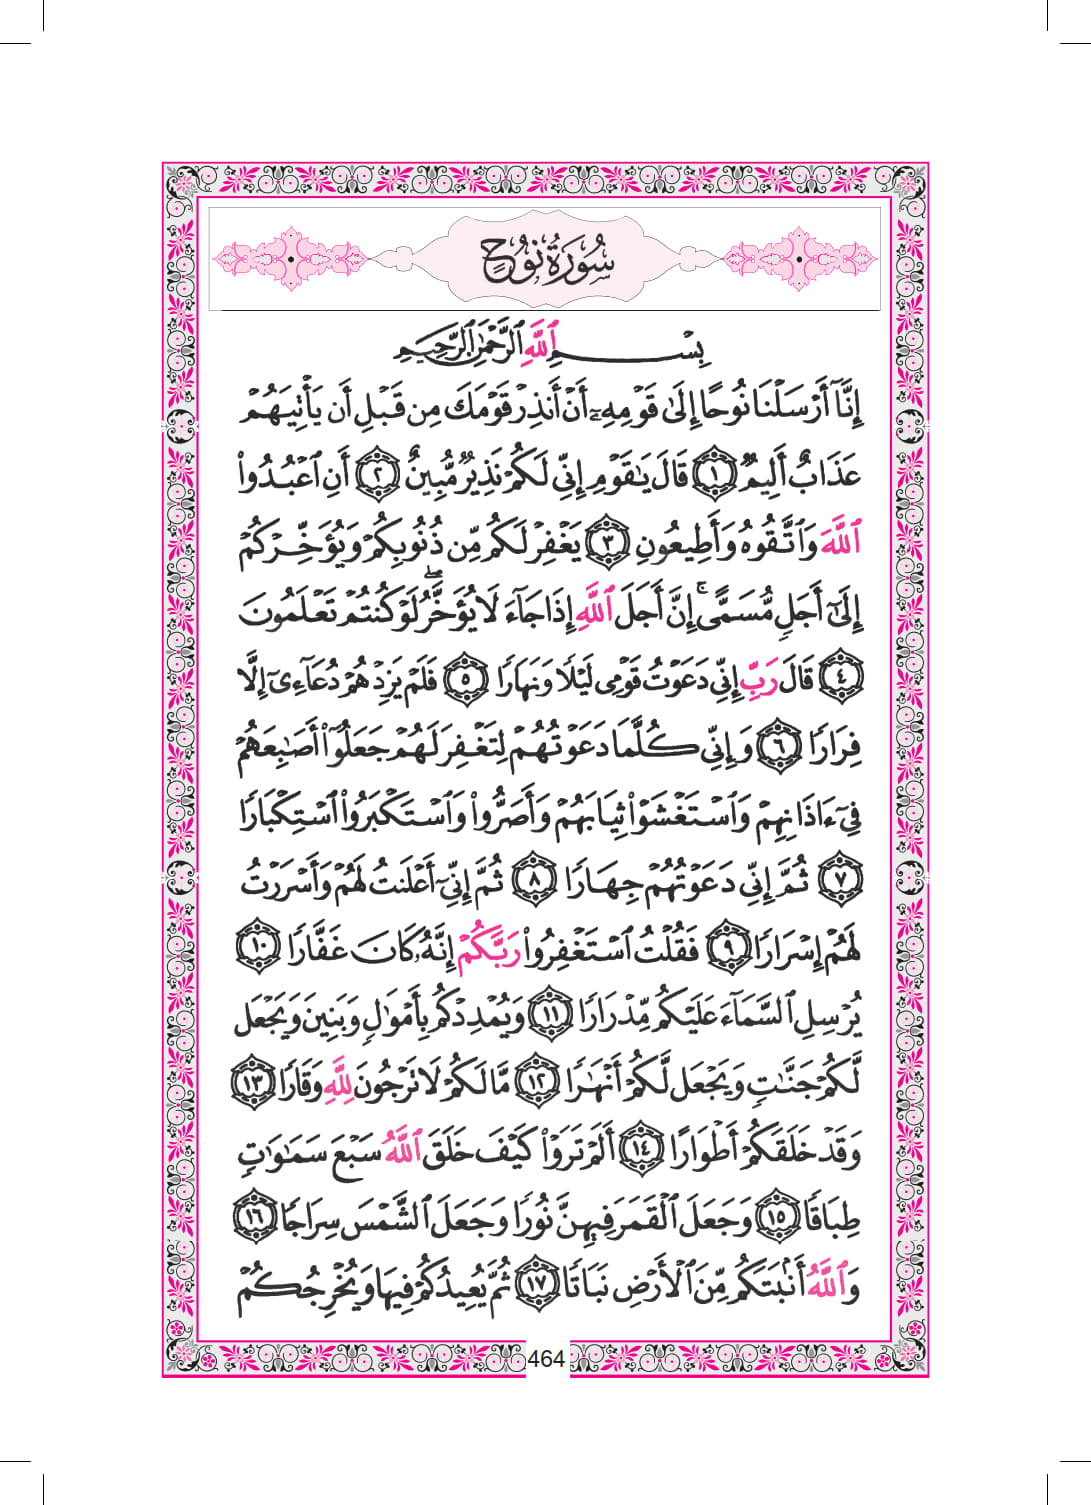 سُورَةُ نُوحٍ
بِسْمِ ٱللَّهِ ٱلرَّحْمَٰنِ ٱلرَّحِيمِ
إِنَّآ أَرْسَلْنَا نُوحًا إِلَىٰ قَوْمِهِۦٓ أَنْ أَنذِرْ قَوْمَكَ مِن قَبْلِ أَن يَأْتِيَهُمْ
عَذَابٌ أَلِيمٌ ١ قَالَ يَٰقَوْمِ إِنِّى لَكُمْ نَذِيرٌ مُّبِينٌ ٢ أَنِ ٱعْبُدُوا۟
ٱللَّهَ وَٱتَّقُوهُ وَأَطِيعُونِ ٣ يَغْفِرْ لَكُم مِّن ذُنُوبِكُمْ وَيُؤَخِّرْكُمْ
إِلَىٰٓ أَجَلٍ مُّسَمًّى ۚ إِنَّ أَجَلَ ٱللَّهِ إِذَا جَآءَ لَا يُؤَخَّرُ ۖ لَوْ كُنتُمْ تَعْلَمُونَ
٤ قَالَ رَبِّ إِنِّى دَعَوْتُ قَوْمِى لَيْلًا وَنَهَارًا ٥ فَلَمْ يَزِدْهُمْ دُعَآءِىٓ إِلَّا
فِرَارًا ٦ وَإِنِّى كُلَّمَا دَعَوْتُهُمْ لِتَغْفِرَ لَهُمْ جَعَلُوٓا۟ أَصَٰبِعَهُمْ
فِىٓ ءَاذَانِهِمْ وَٱسْتَغْشَوْا۟ ثِيَابَهُمْ وَأَصَرُّوا۟ وَٱسْتَكْبَرُوا۟ ٱسْتِكْبَارًا
٧ ثُمَّ إِنِّى دَعَوْتُهُمْ جِهَارًا ٨ ثُمَّ إِنِّىٓ أَعْلَنتُ لَهُمْ وَأَسْرَرْتُ
لَهُمْ إِسْرَارًا ٩ فَقُلْتُ ٱسْتَغْفِرُوا۟ رَبَّكُمْ إِنَّهُۥ كَانَ غَفَّارًا ١٠
يُرْسِلِ ٱلسَّمَآءَ عَلَيْكُم مِّدْرَارًا ١١ وَيُمْدِدْكُم بِأَمْوَٰلٍ وَبَنِينَ وَيَجْعَل
لَّكُمْ جَنَّٰتٍ وَيَجْعَل لَّكُمْ أَنْهَٰرًا ١٢ مَّا لَكُمْ لَا تَرْجُونَ لِلَّهِ وَقَارًا ١٣
وَقَدْ خَلَقَكُمْ أَطْوَارًا ١٤ أَلَمْ تَرَوْا۟ كَيْفَ خَلَقَ ٱللَّهُ سَبْعَ سَمَٰوَٰتٍ
طِبَاقًا ١٥ وَجَعَلَ ٱلْقَمَرَ فِيهِنَّ نُورًا وَجَعَلَ ٱلشَّمْسَ سِرَاجًا ١٦
وَٱللَّهُ أَنۢبَتَكُم مِّنَ ٱلْأَرْضِ نَبَاتًا ١٧ ثُمَّ يُعِيدُكُمْ فِيهَا وَيُخْرِجُكُمْ
464